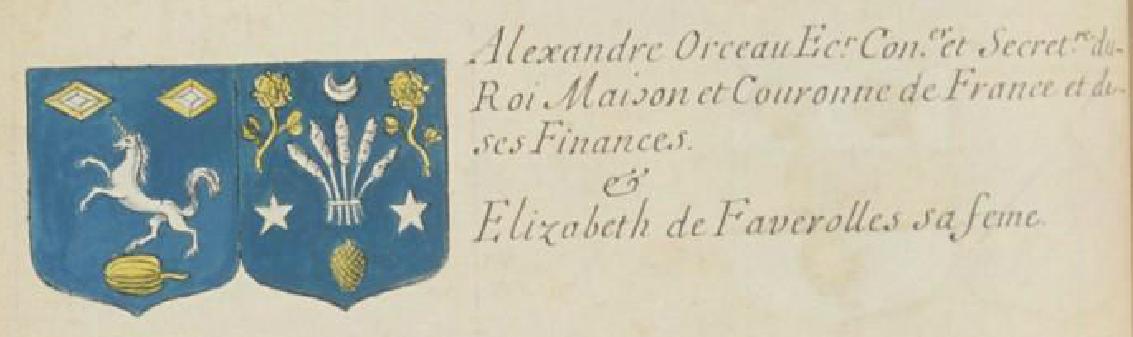 Alexandre Orceau Ecr Con.er et Secret.re du
Roi Maison et Couronne de France et de
ses Finances.
&
Elizabeth de Faverolles sa feme.